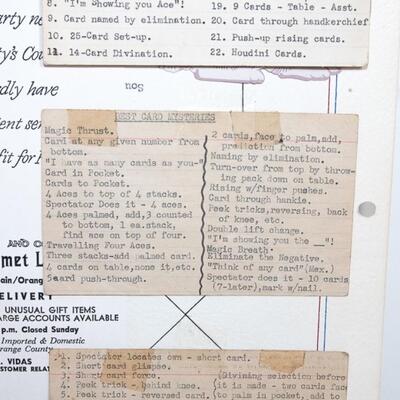 8. "I'm Showing you Ace"!
9. Card named by elimination.
10. 25-Card Set-up.
11. 14-Card Divination.
19. 9 Cards - Table - Asst.
20. Card through handkerchief
21. Push-up rising cards.
22. Houdini Cards.
arty ne
ty's Cou
dly have
ent ser
fit for
BEST CARD MYSTERIES
Magic Thrust.
Card at any given number from
bottom.
"I have as many cards as you-"
Card in Pocket.
Cards to Pocket.
4 Aces to top of 4 stacks.
Spectator Does it - 4 aces.
4 Aces palmed, add,3 counted
to bottom, 1 ea.stack,
find ace on top of four.
Travelling Four Aces.
Three stacks-add palmed card.
4 cards on table,none it,etc.
5 card push-through.
2 cards,face to palm,add,
prediction from bottom.
Naming by elimination.
Turn-over from top by throw-
ing pack down on table.
Rising w/finger pushes.
Card through hankie.
Peek tricks,reversing, back
of knee, etc.
Double lift change.
"I'm showing you the __"!
Magic Breath.
Eliminate the Negative.
"Think of any card" (Mex.)
Spectator does it - 10 cards
(7-later),mark w/nail.
AND
met L
ain/Orang
DELIVERY
UNUSUAL GIFT ITEMS
ARGE ACCOUNTS AVAILABLE
p.m. Closed Sunday
Imported & Domestic
range County
. VIDAS
USTOMER RELAT
1. Spectator locates own - short card.
2. Short card glimpse.
3. Short card force.
4. Peek trick - behind knee.
5. Peek trick - reversed card.
(Divining selection before
it is made - two cards face
to palm in pocket, add to